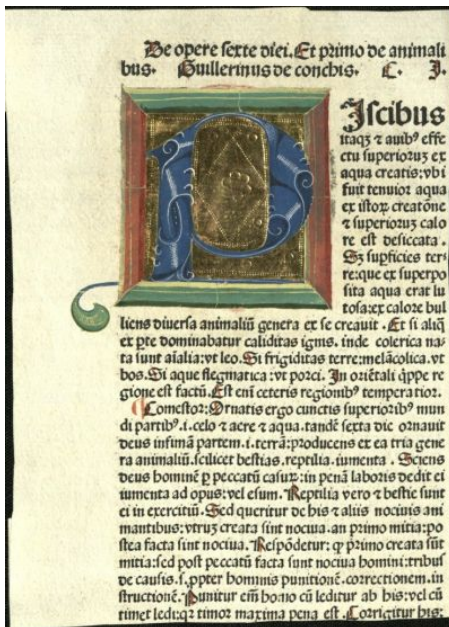 De opere sexte diei. Et primo de animali
bus. Guillerinus de conchis. C. I.
PIscibus
itaqꝫ ⁊ auibꝰ effe
ctu superioruꝫ ex
aqua creatis; vbi
fuit tenuior aqua
ex istoꝝ creatōne
⁊ superioruꝫ calo
re est desiccata.
Sꝫ suꝑficies ter⸗
re: que ex superpo
sita aqua erat lu
tosa: ex calore bul
liens diuersa animaliū genera ex se creauit. Et si aliq̄
ex ꝑte dominabatur caliditas ignis. inde colerica na⸗
ta sunt aīalia: vt leo. Si frigiditas terre: melācolica. vt
bos. Si aque flegmatica: vt porci. In oriētali q̄ppe re
gione est factū. Est em̄ ceteris regionibꝰ temperatior.
¶ Comestor: Ornatis ergo cunctis superioribꝰ mun
di partibꝰ .i. celo ⁊ aere ⁊ aqua. tandē sexta die ornauit
deus infimā partem .i. terrā: producens ex ea tria gene
ra animaliū. scilicet bestias. reptilia. iumenta. Sciens
deus hominē ꝑ peccatū casuꝝ: in penā laboris dedit ei
iumenta ad opus: vel esum. Reptilia vero ⁊ bestie sunt
ei in exercitiū. Sed queritur de his ⁊ aliis nociuis ani
mantibus: vtruꝫ creata sint nociua. an primo mitia: po
stea facta sint nociua. Respōdetur: ꝙ primo creata sūt
mitia: sed post peccatū facta sunt nociua homini: tribus
de causis. s. ꝓpter hominis punitionē. correctionem. in
structionē. Punitur em̄ homo cū leditur ab his: vel cū
timet ledi: qꝛ timor maxima pena est. Corrigitur his: